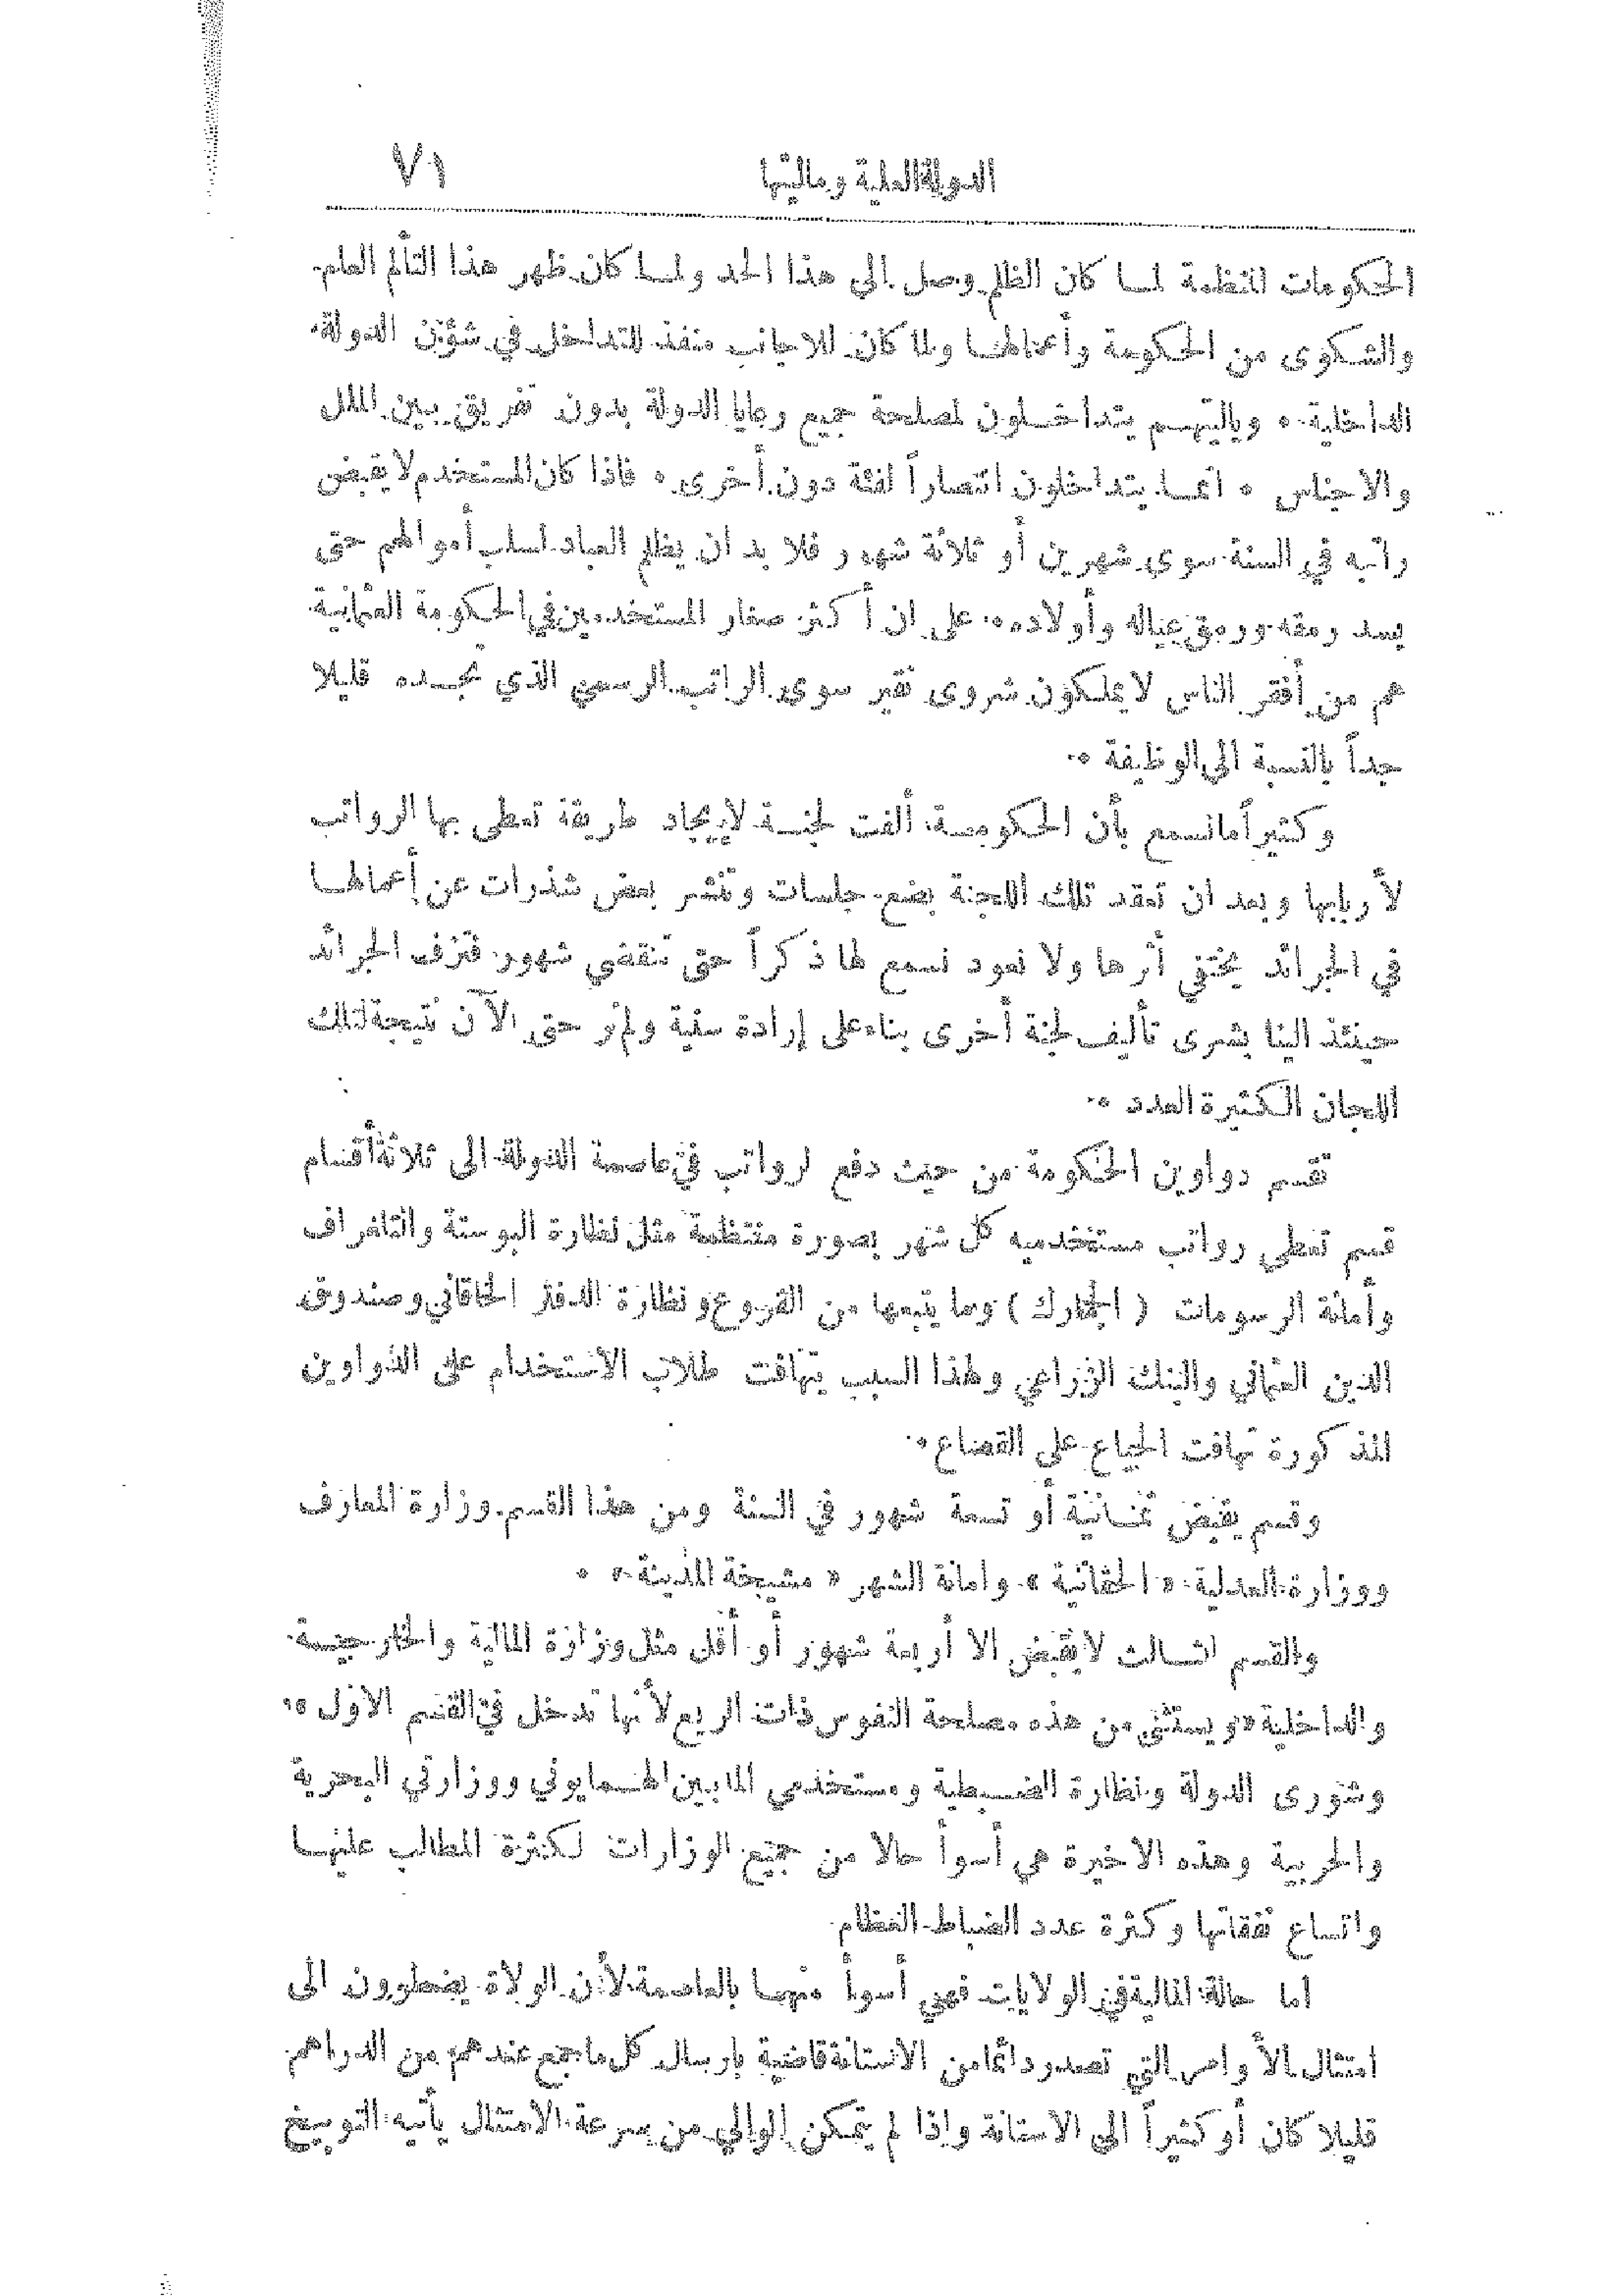 الدولة العلية وماليتها
٧١
الحكومات المنتظمة لما كان الظلم وصل الى هذا الحد ولما كان ظهر هذا التألم العام
والشكوى من الحكومة وأعمالها ولما كان للاجانب منفذ للتداخل في شؤن الدولة
الداخلية ٠ وياليتهم يتداخلون لمصلحة جميع رعايا الدولة بدون تفريق بين الملل
والاجناس ٠ انما يتداخلون انتصاراً لفئة دون أخرى ٠ فاذا كان المستخدم لا يقبض
راتبه في السنة سوى شهرين أو ثلاثة شهور فلا بد ان يظلم العباد لسلب أموالهم حتى
يسد رمقه ورمق عياله وأولاده ٠ على ان أكثر صغار المستخدمين في الحكومة العثمانية
هم من أفقر الناس لا يملكون شروى نقير سوى الراتب الرسمي الذي نجده قليلا
جداً بالنسبة الى الوظيفة ٠
وكثيراً مانسمع بأن الحكومة ألفت لجنة لإيجاد طريقة تعطى بها الرواتب
لأربابها وبعد ان تعقد تلك اللجنة بضع جلسات وتنشر بعض شذرات عن أعمالها
في الجرائد يختفي أثرها ولا نعود نسمع لها ذكراً حتى تنقضي شهور فتزف الجرائد
حينئذ الينا بشرى تأليف لجنة أخرى بناء على إرادة سنية ولم نر حتى الآن نتيجة لتلك
اللجان الكثيرة العدد ٠
تقسم دواوين الحكومة من حيث دفع لرواتب في عاصمة الدولة الى ثلاثة أقسام
قسم تعطى رواتب مستخدميه كل شهر بصورة منتظمة مثل نظارة البوستة والتلغراف
وأمانة الرسومات ( الجمارك ) وما يتبعها من الفروع ونظارة الدفتر الخاقاني وصندوق
الدين العثماني والبنك الزراعي ولهذا السبب يتهافت طلاب الاستخدام على الدواوين
المذكورة تهافت الجياع على القصاع ٠
وقسم يقبض ثمانية أو تسعة شهور في السنة ومن هذا القسم وزارة المعارف
ووزارة العدلية « الحقانية » وامانة الشهر « مشيخة المدينة » ٠
والقسم الثالث لا يقبض الا أربعة شهور أو أقل مثل وزارة المالية والخارجية
والداخلية «ويستثنى من هذه مصلحة النفوس ذات الريع لأنها تدخل في القسم الاول »
وشورى الدولة ونظارة الضبطية ومستخدمي المابين الهمايوني ووزارتي البحرية
والحربية وهذه الاخيرة هي أسوأ حالا من جميع الوزارات لكثرة المطالب عليها
واتساع نفقاتها وكثرة عدد الضباط العظام
اما حالة المالية في الولايات فهي أسوأ منها بالعاصمة لأن الولاة يضطرون الى
امتثال الأوامر التي تصدر دائما من الاستانة قاضية بارسال كل ما يجمع عندهم من الدراهم
قليلا كان أو كثيراً الى الاستانة وإذا لم يتمكن الوالي من سرعة الامتثال يأتيه التوبيخ